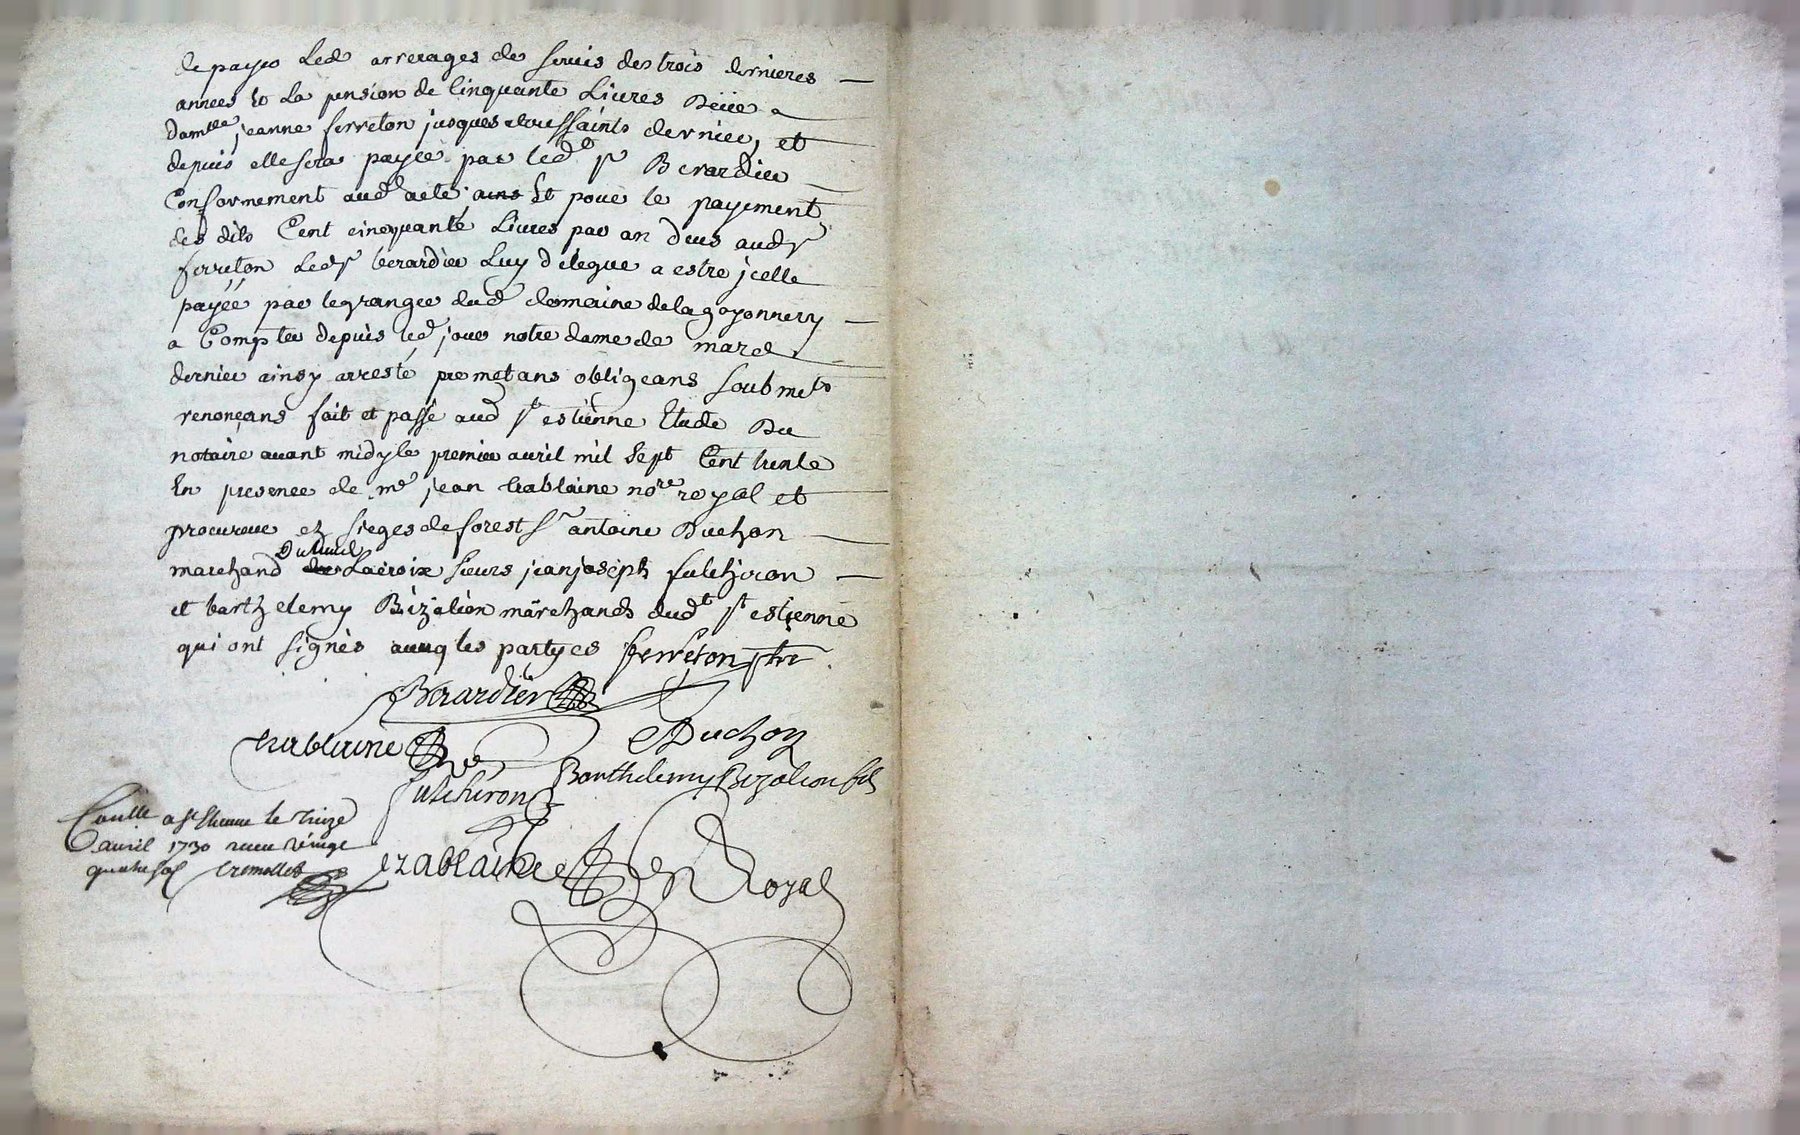 de payer led arrerages de servis des trois dernieres
années Et La pension de Cinquante Livres Deüe a
damlle jeanne ferreton jusques a toussaints dernier, et
depuis elle sera payée par led sr Berardier
Conformement aud acte, ains Et pour le payement
des dits Cent cinquante Livres par an deus aud sr
ferreton Led sr berardier Luy délegue a estre jcelle
payéé par le granger dud domaine de la goyonnery
a Compter depuis led jour notre dame de mars
dernier ainsy arresté promettans obligeans soub mets
renonceans fait et passé aud st estienne Etude Du
notaire auant midy le premier auril mil sept Cent trente
En presence de me jean trablaine nore royal et
procureur ez sieges de forest sr antoine Duchon
marchand Lacroix sieurs jean joseph fulchiron
et barthelemy Bizalion marchands dudt st estienne
qui ont signés auuq les partyes ferreton ptre
Berardier
trablaine Duchon
fulchiron Barthelemy Bizalion fils
Conllé a st Etienne le treize
auril 1730 receu vingt
quatre sol cremollet
trablaine Royal